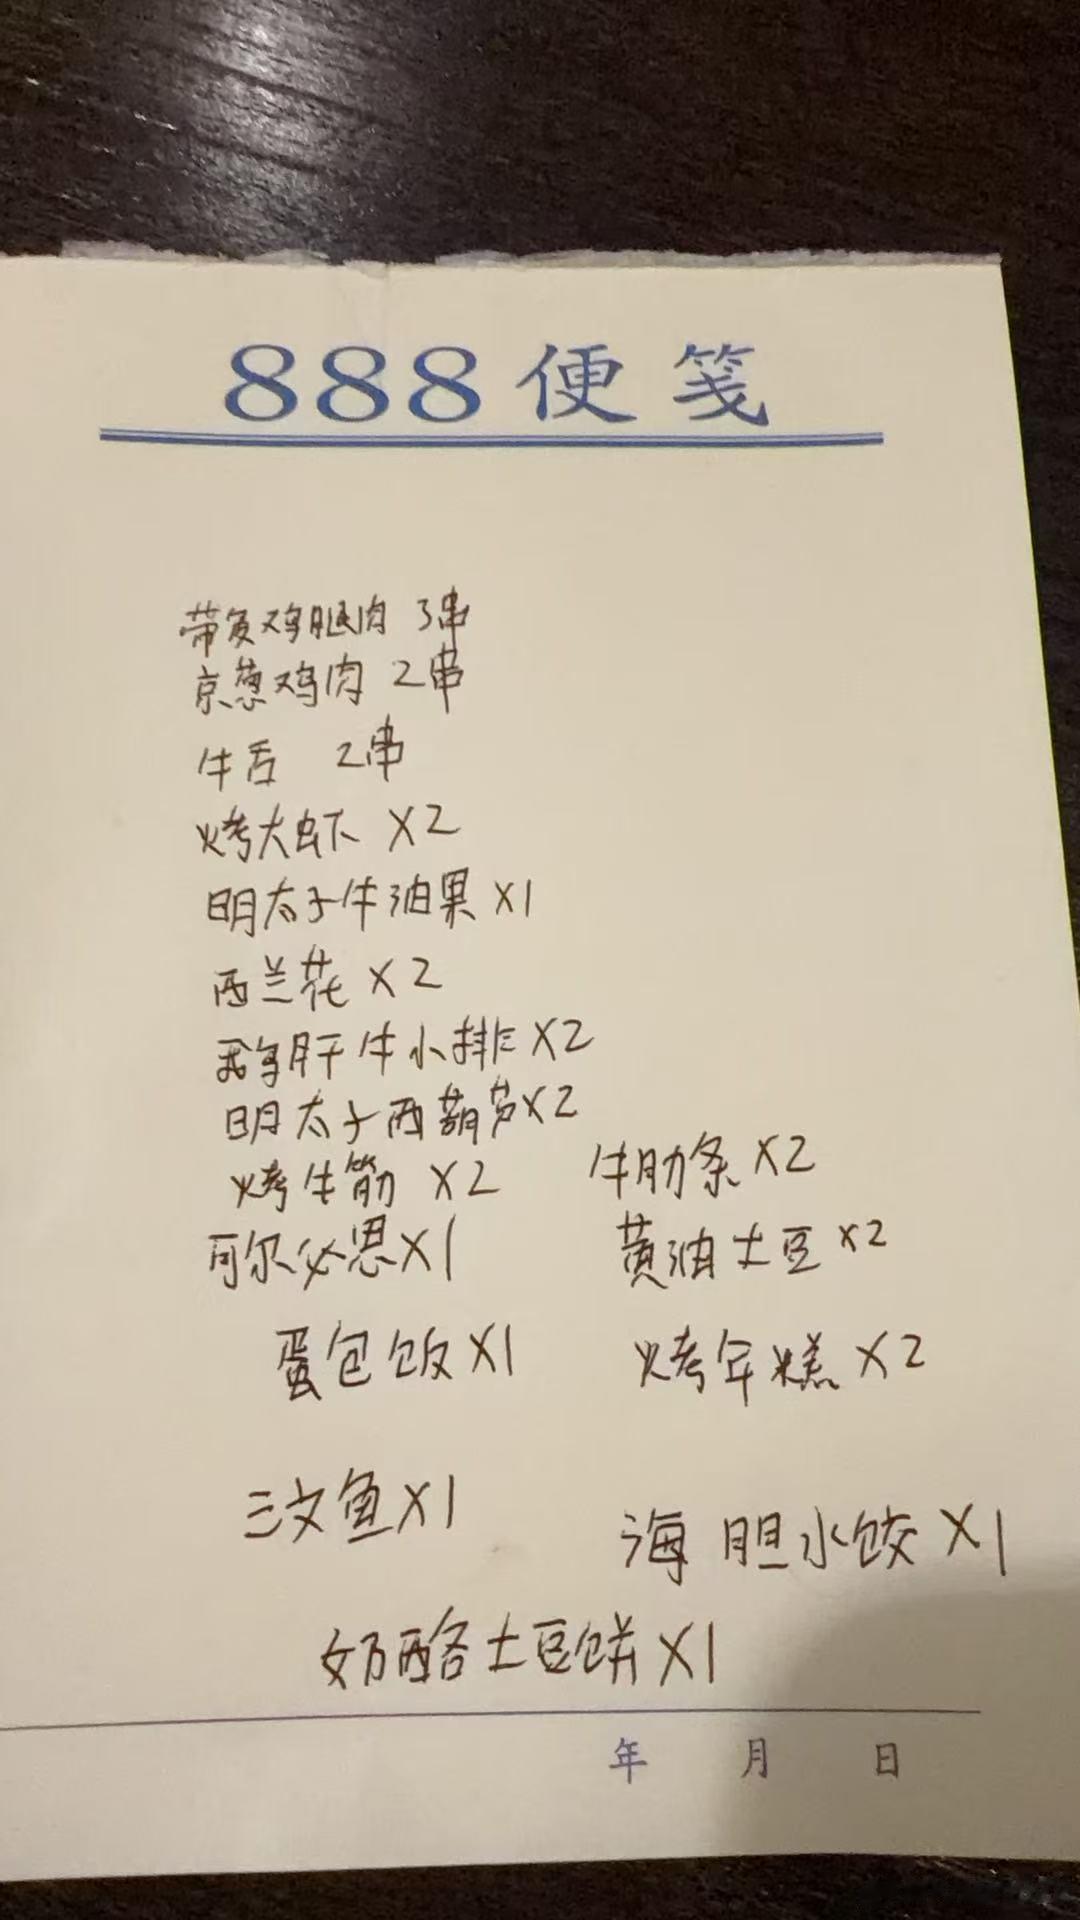 888便笺
带皮鸡腿肉 3串
京葱鸡肉 2串
牛舌 2串
烤大虾 X2
明太子牛油果 X1
西兰花 X2
鹅肝牛小排 X2
明太子西葫芦X2
烤牛筋 X2
牛肋条 X2
可尔必思X1
黄油土豆 X2
蛋包饭X1
烤年糕 X2
三文鱼X1
海胆水饺 X1
奶酪土豆饼 X1
年 月 日